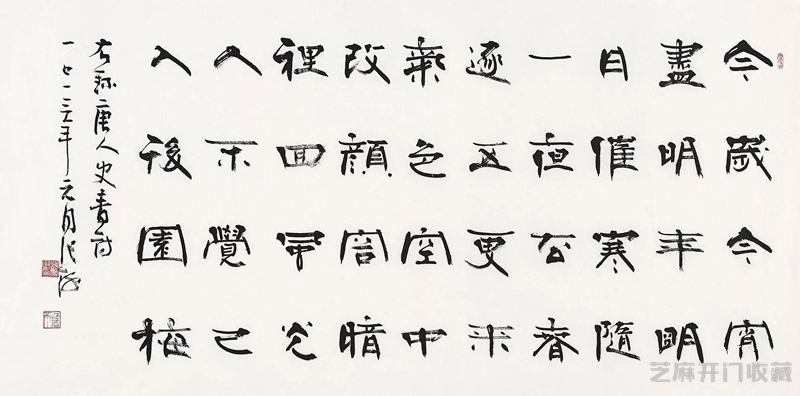 今歲今宵
盡明年明
日催寒隨
一夜去春
逐五更来
氣色空中
改顏容暗
裡回風光
人不覺已
入後園梅
右録唐人史青詩
年元月张海
芝麻开门收藏